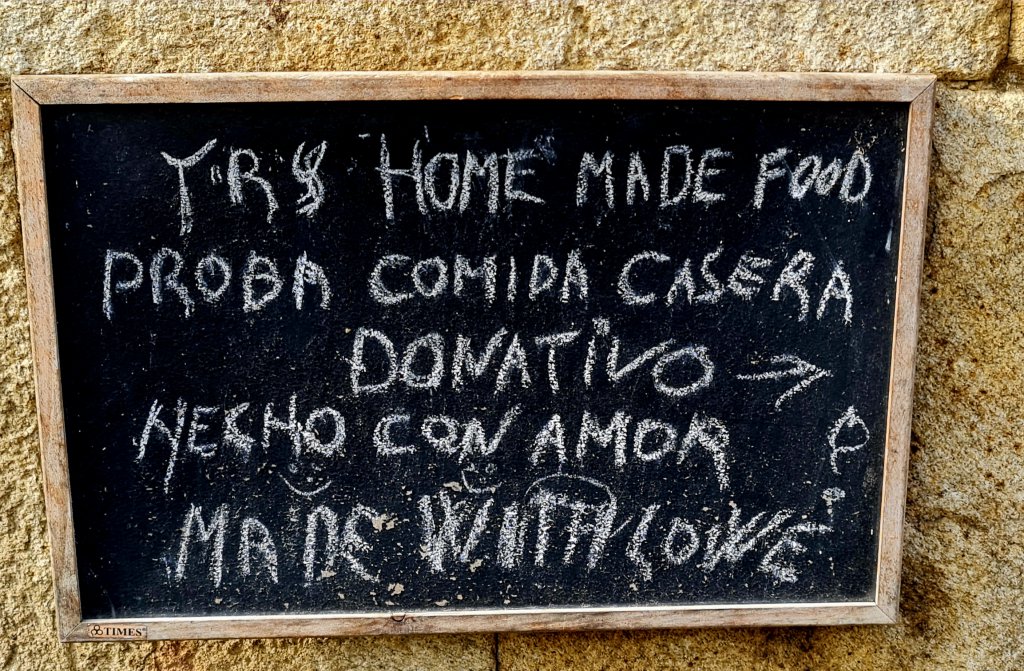 HOME MADE FOOD
PROBA COMIDA CASERA
DONATIVO →
HECHO CON AMOR
MADE WITH LOWE
TIMES